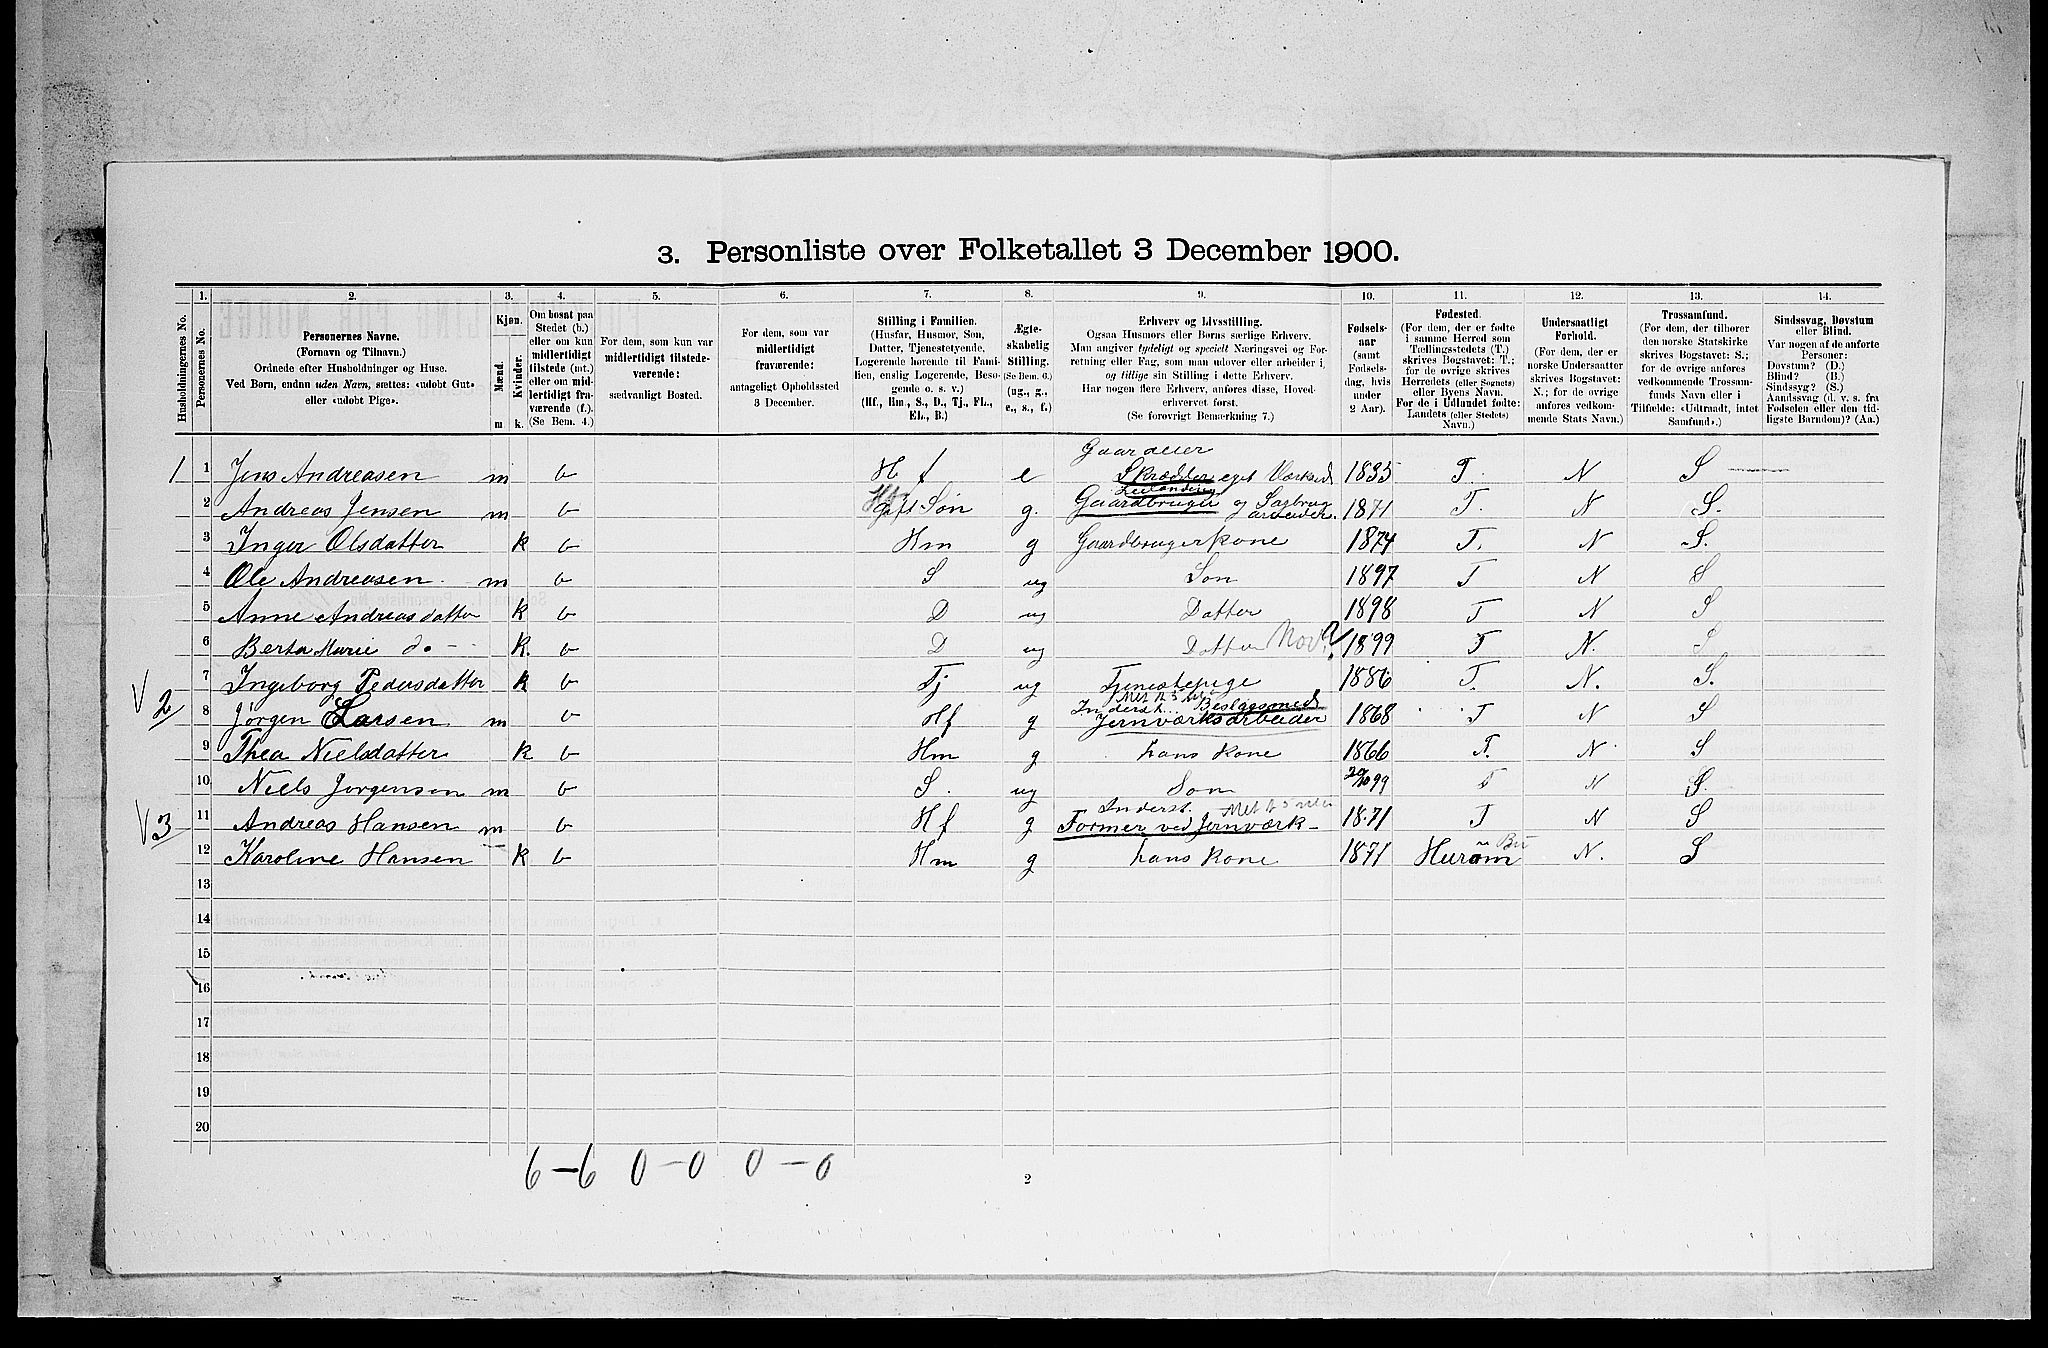 3. Personliste over Folketallet 3 December 1900.
Husholdningernes No.
1.
Personernes No.
2.
Personernes Navne.
(Fornavn og Tilnavn.)
Ordnede efter Husholdninger og Huse.
Ved Børn, endnu uden Navn, sættes: «udøbt Gut»
eller «udøbt Pige».
3.
Kjøn.
Mænd.
Kvinder.
m k.
4.
Om bosat paa
Stedet (b.)
eller om kun
midlertidigt
tilstede (mt.)
eller om mid-
lertidigt fra-
værende (f.).
(Se Bem. 4.)
5.
For dem, som kun var
midlertidigt tilstede-
værende:
sædvanligt Bosted.
6.
For dem, som var
midlertidigt
fraværende:
antageligt Opholdssted
3 December.
7.
Stilling i Familien.
(Husfar, Husmor, Søn,
Datter, Tjenestetyende,
Logerende hørende til Fami-
lien, enslig Logerende, Besø-
gende o. s. v.)
(Hf., Hm., S., D., Tj., FL.,
EL., B.)
8.
Ægte-
skabelig
Stilling.
(Se Bem. 6.)
(ug., g.,
e., s., f.)
9.
Erhverv og Livsstilling.
Ogsaa Husmors eller Børns særlige Erhverv.
Man angiver tydeligt og specielt Næringsvei og For-
retning eller Fag, som man udøver eller arbeider i,
og tillige sin Stilling i dette Erhverv.
Har nogen flere Erhverv, anføres disse, Hoved-
erhvervet først.
(Se forøvrigt Bemærkning 7.)
10.
Fødsels-
aar
(samt
Fødsels-
dag, hvis
under
2 Aar).
11.
Fødested.
(For dem, der er fødte
i samme Herred som
Tællingsstedets (T.)
skrives Bogstavet: T.;
for de øvrige skrives
Herredets (eller Sognets)
eller Byens Navn.
For de i Udlandet fødte:
Landets (eller Stedets)
Navn.)
12.
Undersaatligt
Forhold.
(For dem, der er
norske Undersaatter
skrives Bogstavet:
N.; for de øvrige
anføres vedkom-
mende Stats Navn.)
13.
Trossamfund.
(For dem, der tilhører
den norske Statskirke
skrives Bogstavet: S.;
for de øvrige anføres
vedkommende Trossam-
funds Navn eller i
Tilfælde: «Udtraadt, intet
Samfund».)
14.
Sindssvag, Døvstum
eller Blind.
Var nogen af de anførte
Personer:
Døvstum? (D.)
Blind? (B.)
Sindssyg? (S.)
Aandssvag (d. v. s. fra
Fødselen eller den tid-
ligste Barndom)? (Aa.)
Gaardeier
1 1 Jens Andreasen m b Hf e Skrædder eget Værksted 1835 T. N S
Leilænding
2 Andreas Jensen m b Søn g. Gaardbruger og Sagbrug arbeider. 1871 T. N S.
3 Inger Olsdatter k b Hm g Gaardbrugerkone 1874 T. N S.
4 Ole Andreasen m b S ug Søn 1897 T N S
5 Anne Andreasdatter k b D ug Datter 1898 T N S
6 Berta Marie do k. b D ug Datter Nov? 1899 T N. S
7 Ingeborg Pedersdatter k b Tj ug Tjenestepige 1886 T. N. S.
Beslagsmed
V 2 8 Jørgen Larsen m b Hf g Jernværksarbeider 1868 T N S
9 Thea Nielsdatter k b Hm g hans Kone 1866 T. N S
10 Niels Jørgensen m b S. ug Søn 20/10 99 T N S.
Inderst.
V 3 11 Andreas Hansen m b Hf g Former ved Jernværk 1871 T N S
12 Karoline Hansen k b Hm g hans Kone 1871 Hurum N. S
13
14
15
16
17
18
19
20
6–6 0–0 0–0
2